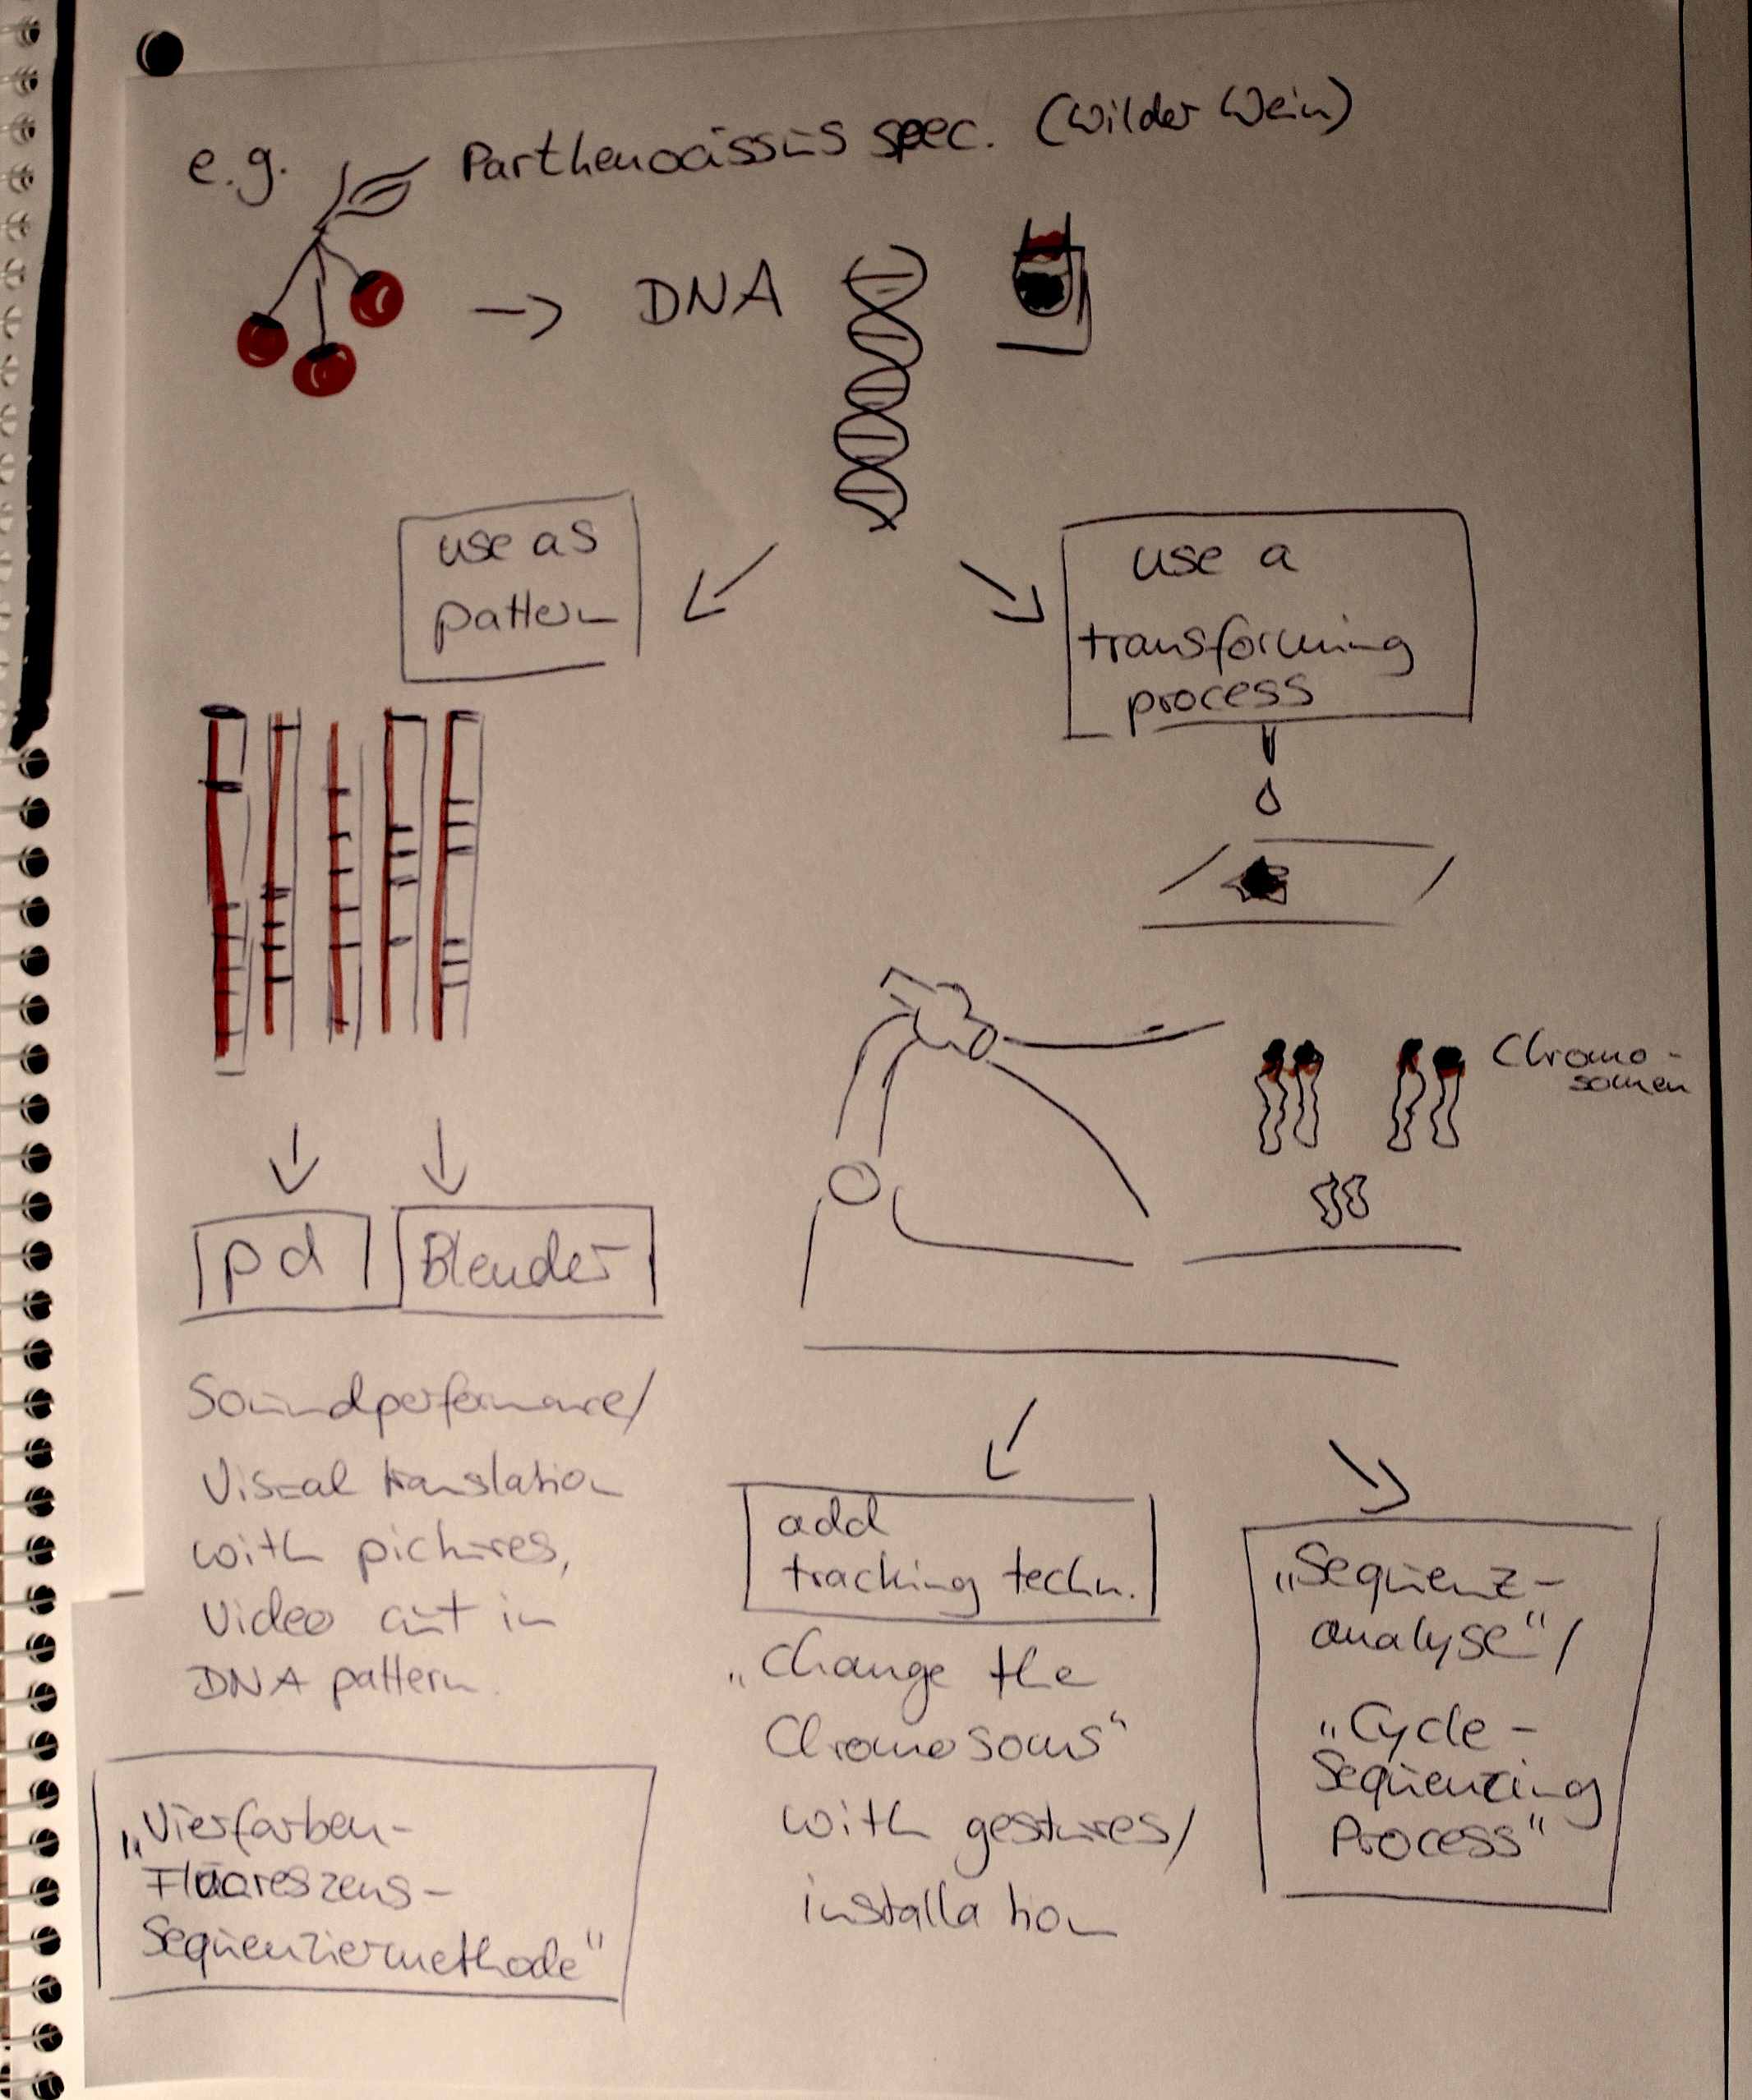 e.g. Parthenocissus spec. (Wilder Wein)
→ DNA
use as
pattern
use a
transforming
process
Chromo-
somen
pd
Blender
Soundperformance/
Visual translation
with pictures,
Video cut in
DNA pattern.
„Vierfarben-
Fluoreszens-
Sequenziermethode“
add
tracking techn.
„Change the
Chromosoms“
with gestures/
installation
„Sequenz-
analyse“/
„Cycle-
Sequenzing
Process“